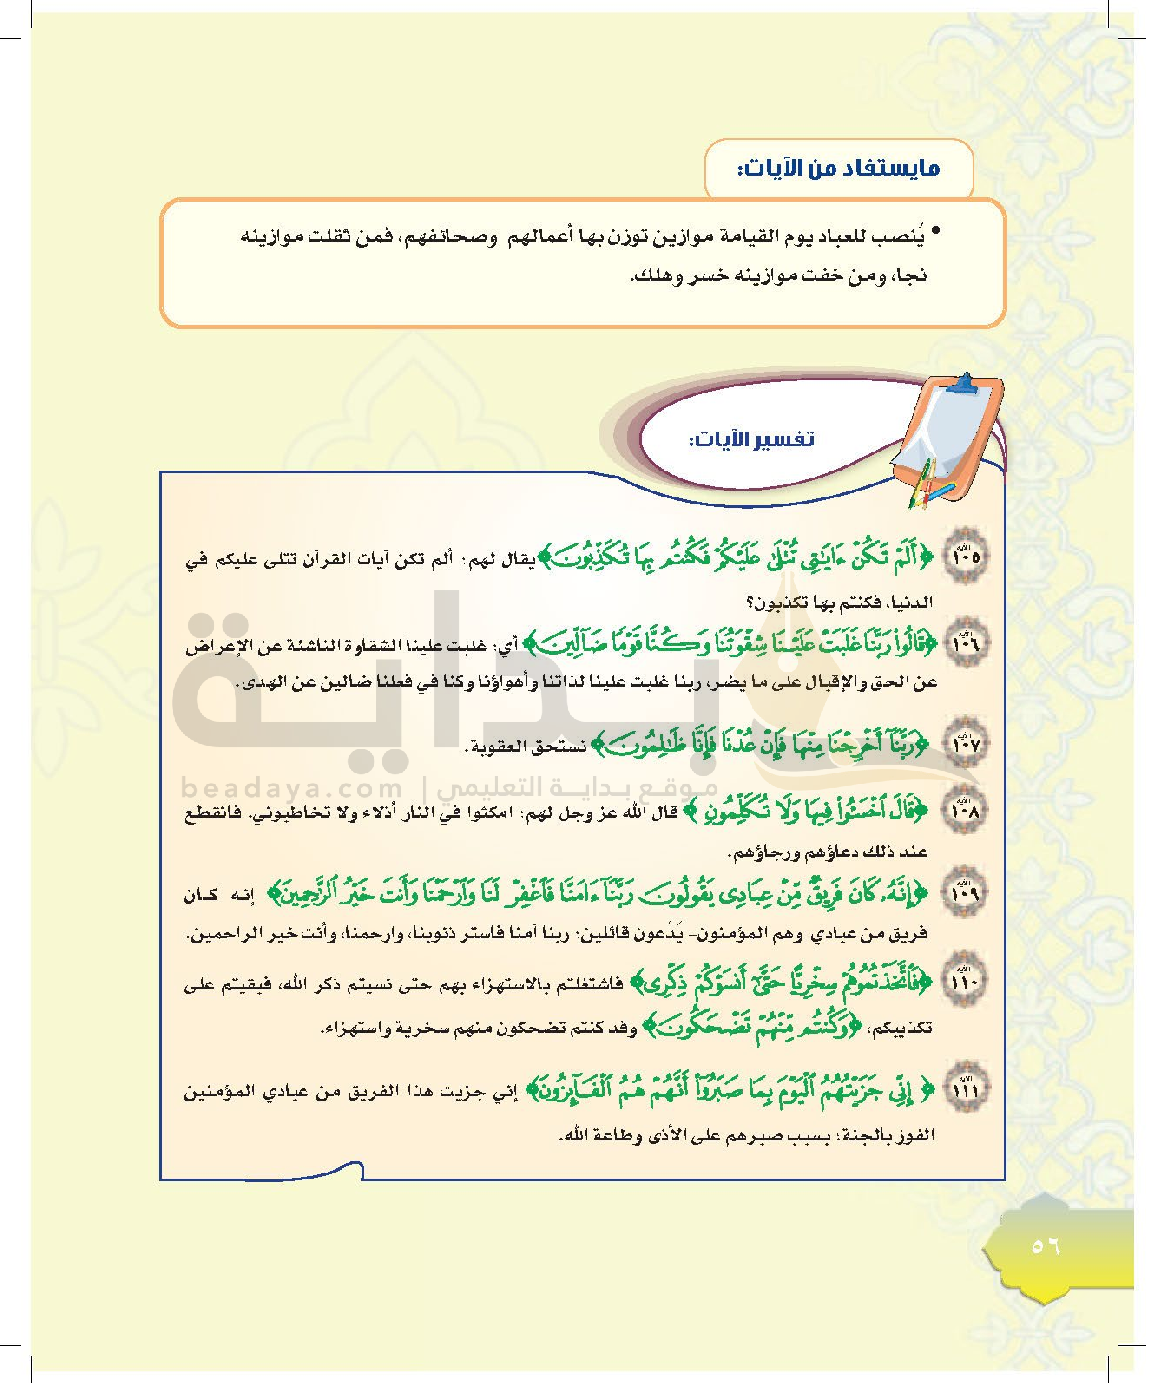 مايستفاد من الآيات:
• يُنصب للعباد يوم القيامة موازين توزن بها أعمالهم وصحائفهم، فمن ثقلت موازينه
نجا، ومن خفت موازينه خسر وهلك.
تفسير الآيات:
الآية ١٠٥ ﴿أَلَمْ تَكُنْ ءَايَٰتِى تُتْلَىٰ عَلَيْكُمْ فَكُنتُم بِهَا تُكَذِّبُونَ﴾ يقال لهم: ألم تكن آيات القرآن تتلى عليكم في
الدنيا، فكنتم بها تكذبون؟
الآية ١٠٦ ﴿قَالُوا۟ رَبَّنَا غَلَبَتْ عَلَيْنَا شِقْوَتُنَا وَكُنَّا قَوْمًا ضَآلِّينَ﴾ أي: غلبت علينا الشقاوة الناشئة عن الإعراض
عن الحق والإقبال على ما يضر، ربنا غلبت علينا لذاتنا وأهواؤنا وكنا في فعلنا ضالين عن الهدى.
الآية ١٠٧ ﴿رَبَّنَآ أَخْرِجْنَا مِنْهَا فَإِنْ عُدْنَا فَإِنَّا ظَٰلِمُونَ﴾ نستحق العقوبة.
بداية
beadaya.com | موقع بداية التعليمي
الآية ١٠٨ ﴿قَالَ ٱخْسَـُٔوا۟ فِيهَا وَلَا تُكَلِّمُونِ﴾ قال الله عز وجل لهم: امكثوا في النار أذلاء ولا تخاطبوني. فانقطع
عند ذلك دعاؤهم ورجاؤهم.
الآية ١٠٩ ﴿إِنَّهُۥ كَانَ فَرِيقٌ مِّنْ عِبَادِى يَقُولُونَ رَبَّنَآ ءَامَنَّا فَٱغْفِرْ لَنَا وَٱرْحَمْنَا وَأَنتَ خَيْرُ ٱلرَّٰحِمِينَ﴾ إنه كان
فريق من عبادي وهم المؤمنون- يَدْعون قائلين: ربنا آمنا فاستر ذنوبنا، وارحمنا، وأنت خير الراحمين.
الآية ١١٠ ﴿فَٱتَّخَذْتُمُوهُمْ سِخْرِيًّا حَتَّىٰٓ أَنسَوْكُمْ ذِكْرِى﴾ فاشتغلتم بالاستهزاء بهم حتى نسيتم ذكر الله، فبقيتم على
تكذيبكم، ﴿وَكُنتُم مِّنْهُمْ تَضْحَكُونَ﴾ وقد كنتم تضحكون منهم سخرية واستهزاء.
الآية ١١١ ﴿إِنِّى جَزَيْتُهُمُ ٱلْيَوْمَ بِمَا صَبَرُوٓا۟ أَنَّهُمْ هُمُ ٱلْفَآئِزُونَ﴾ إني جزيت هذا الفريق من عبادي المؤمنين
الفوز بالجنة؛ بسبب صبرهم على الأذى وطاعة الله.
٥٦